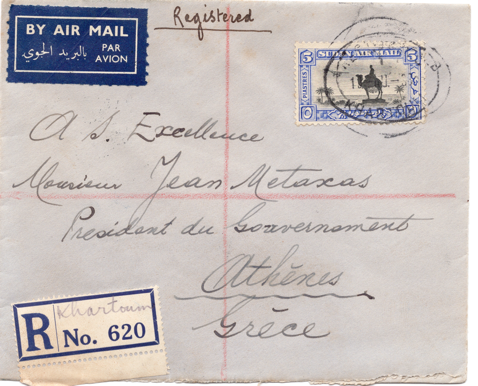 BY AIR MAIL
بالبريد الجوي
PAR
AVION
Registered
SUDAN AIR MAIL
5
5
PIASTRES
A S. Excellence
Monsieur Jean Metaxas
Président du Gouvernement
Athènes
Grèce
R
Khartoum
No. 620